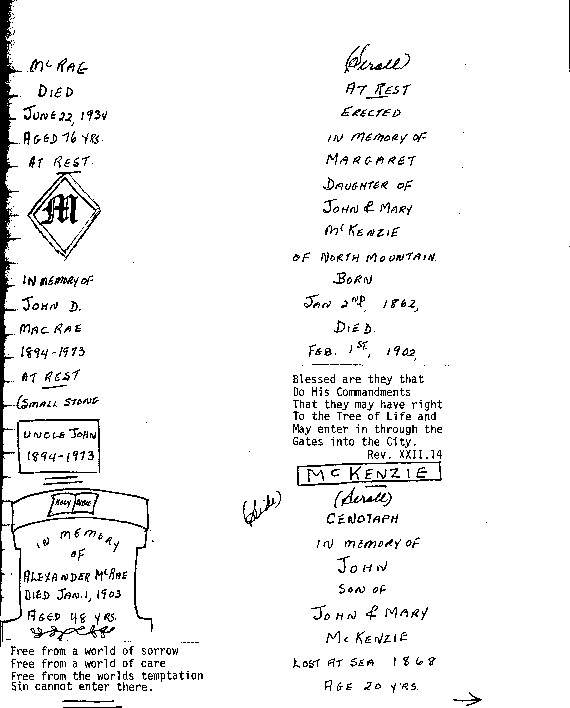 McRAE
DIED
JUNE 22, 1934
AGED 76 YRS.
AT REST.
M
IN MEMORY OF
JOHN D.
MAC RAE
1894-1973
AT REST
(SMALL STONE
UNCLE JOHN
1894-1973
HOLY BIBLE
IN MEMORY
OF
ALEXANDER McRAE
DIED JAN. 1, 1903
AGED 48 YRS.
Free from a world of sorrow
Free from a world of care
Free from the worlds temptation
Sin cannot enter there.
(Scroll)
AT REST
ERECTED
IN MEMORY OF
MARGARET
DAUGHTER OF
JOHN & MARY
McKENZIE
OF NORTH MOUNTAIN.
BORN
JAN 2ND, 1862,
DIED.
FEB. 1ST, 1902,
Blessed are they that
Do His Commandments
That they may have right
To the Tree of Life and
May enter in through the
Gates into the City.
Rev. XXII.14
McKENZIE
(Side)
(Scroll)
CENOTAPH
IN MEMORY OF
JOHN
SON OF
JOHN & MARY
McKENZIE
LOST AT SEA 1868
AGE 20 YRS.